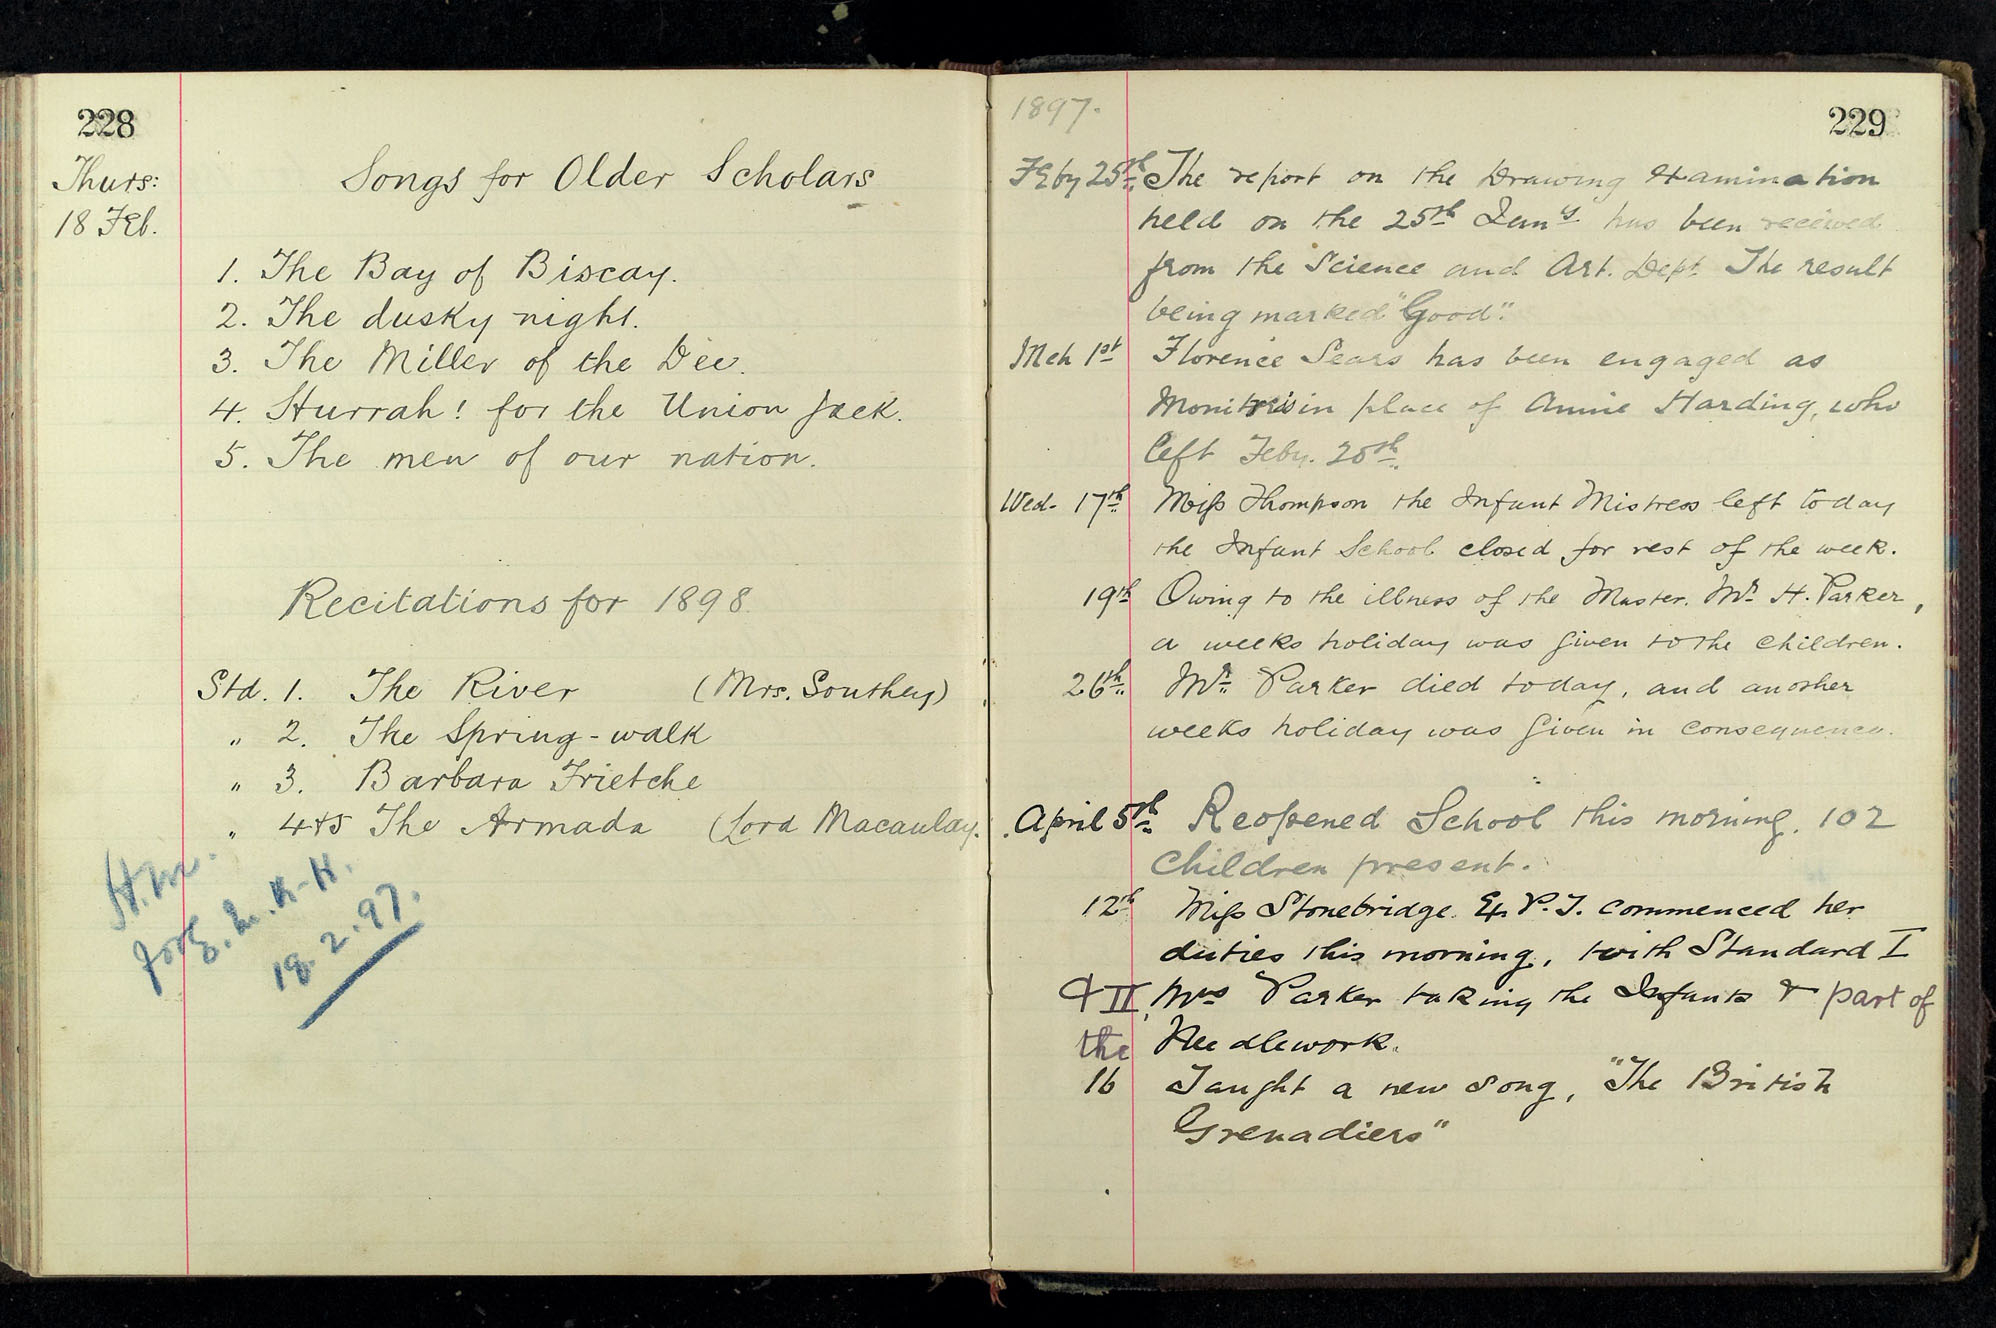 228
Thurs:
18 Feb.
Songs for Older Scholars
1. The Bay of Biscay.
2. The dusky night.
3. The Miller of the Dee.
4. Hurrah! for the Union Jack.
5. The men of our nation.
Recitations for 1898.
Std. 1. The River (Mrs. Southey)
" 2. The Spring-walk
" 3. Barbara Frietche
" 4+5 The Armada (Lord Macaulay.
18.2.97.
1897.
229
Feby 25th The report on the Drawing Examination
held on the 25th Jany has been received
from the Science and Art. Dept. The result
being marked "Good".
Mch 1st Florence Sears has been engaged as
Monitress in place of Annie Harding, who
left Feby. 25th.
Wed. 17th Miss Thompson the Infant Mistress left today
the Infant School closed for rest of the week.
19th Owing to the illness of the Master. Mr H. Parker,
a weeks holiday was given to the children.
26th. Mr. Parker died today, and another
weeks holiday was given in consequence.
April 5th Reopened School this morning. 102
children present.
12th Miss Stonebridge. Ex. P.T. commenced her
duties this morning, with Standard I
& II, Mrs Parker taking the Infants & part of
the Needlework.
16 Taught a new song, "The British
Grenadiers"